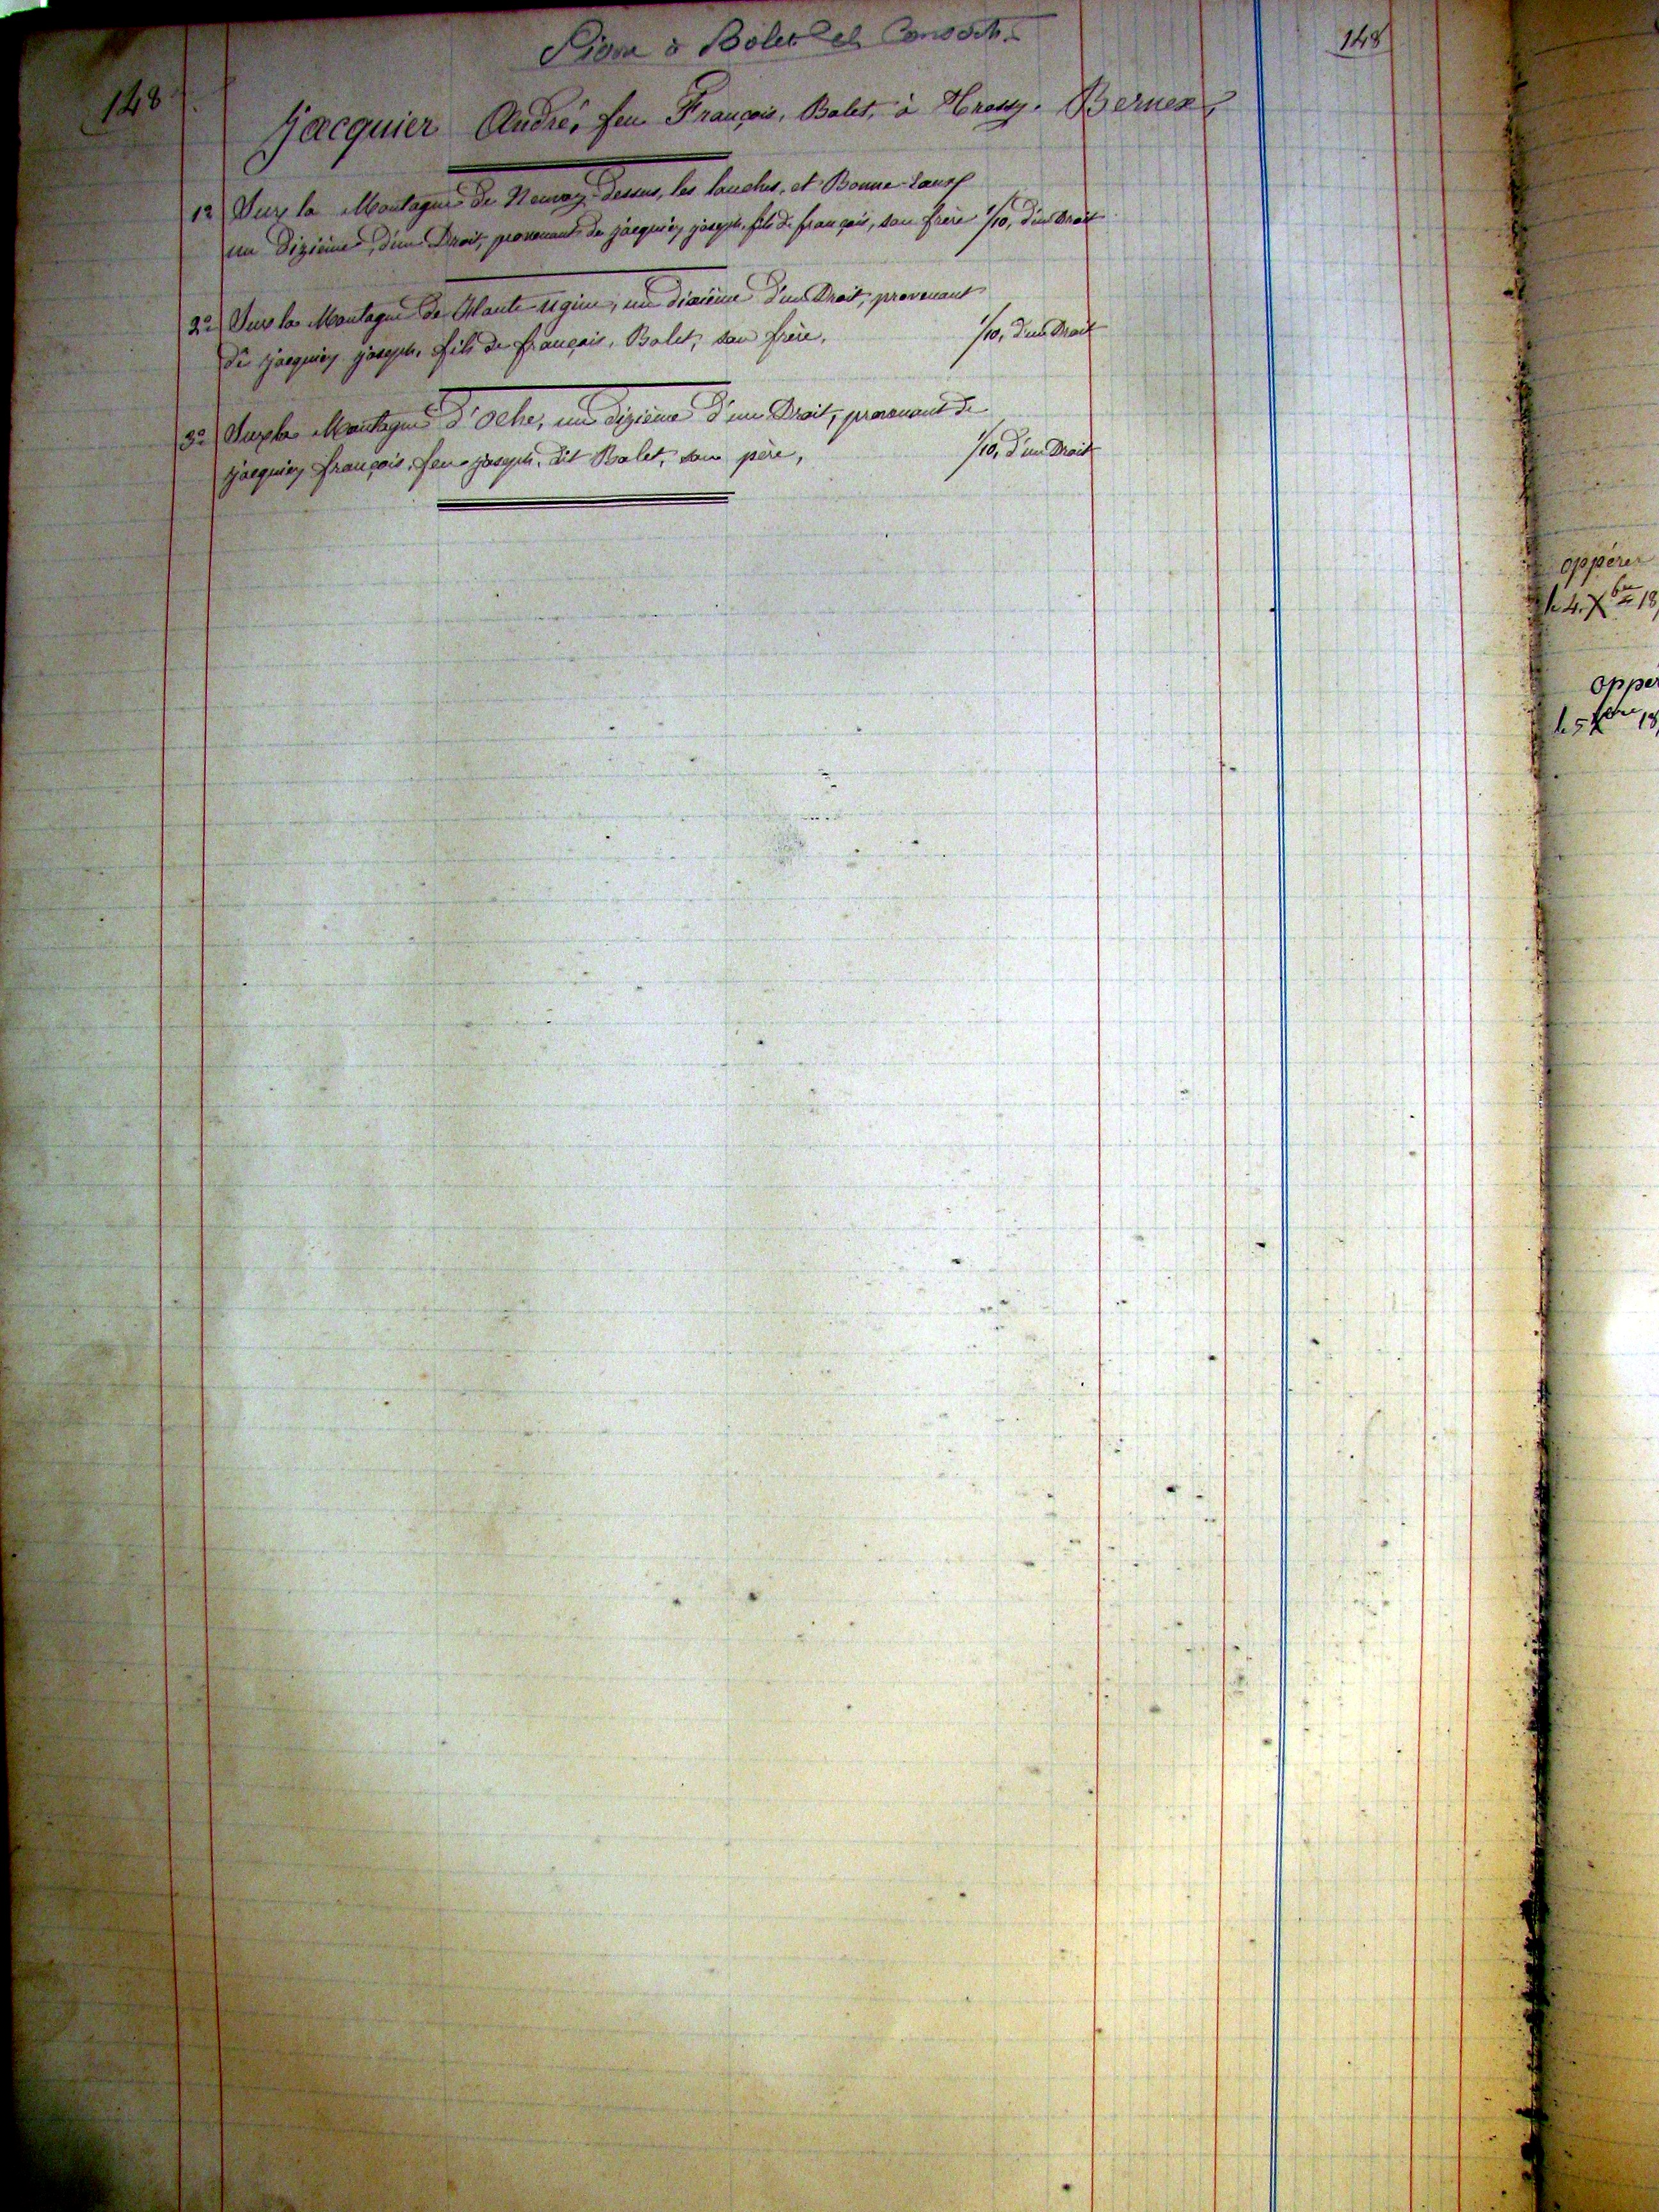 à Bolet et
148
148
Jacquier André, feu François, Bolet, à Trossy. Bernex,
1º Sur la Montagne de Neuvaz-Dessus, les lanches, et Bonne-
un dizième, d'un Droit, provenant de jacquier joseph, fils de françois, son frère 1/10, d'un Droit
2º Sur la Montagne de Haute Ugine, un dixième d'un Droit, provenant
de jacquier joseph, fils de françois, Bolet, son frère, 1/10, d'un Droit
3º Sur la Montagne d'Oche, un dizième d'un Droit, provenant de
jacquier françois, feu joseph, dit Bolet, son père, 1/10, d'un Droit
oppérer
le 4. Xbre 18
oppér
le 5 Xbre 18